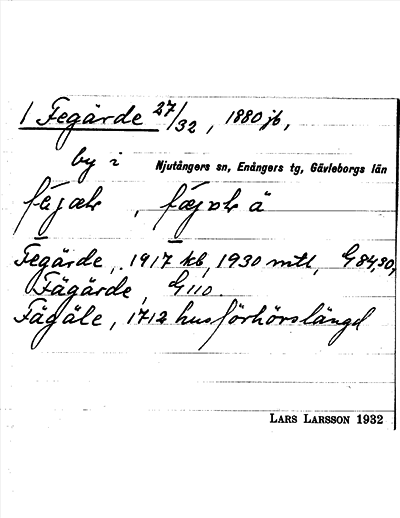 1 Fegärde 27/32, 1880 jb,
by i Njutångers sn, Enångers tg, Gävleborgs län
Fegärde, 1917 kb, 1930 mtl, G 84,30,
Fägärde, G 110.
Fägäle, 1712 husförhörslängd
LARS LARSSON 1932